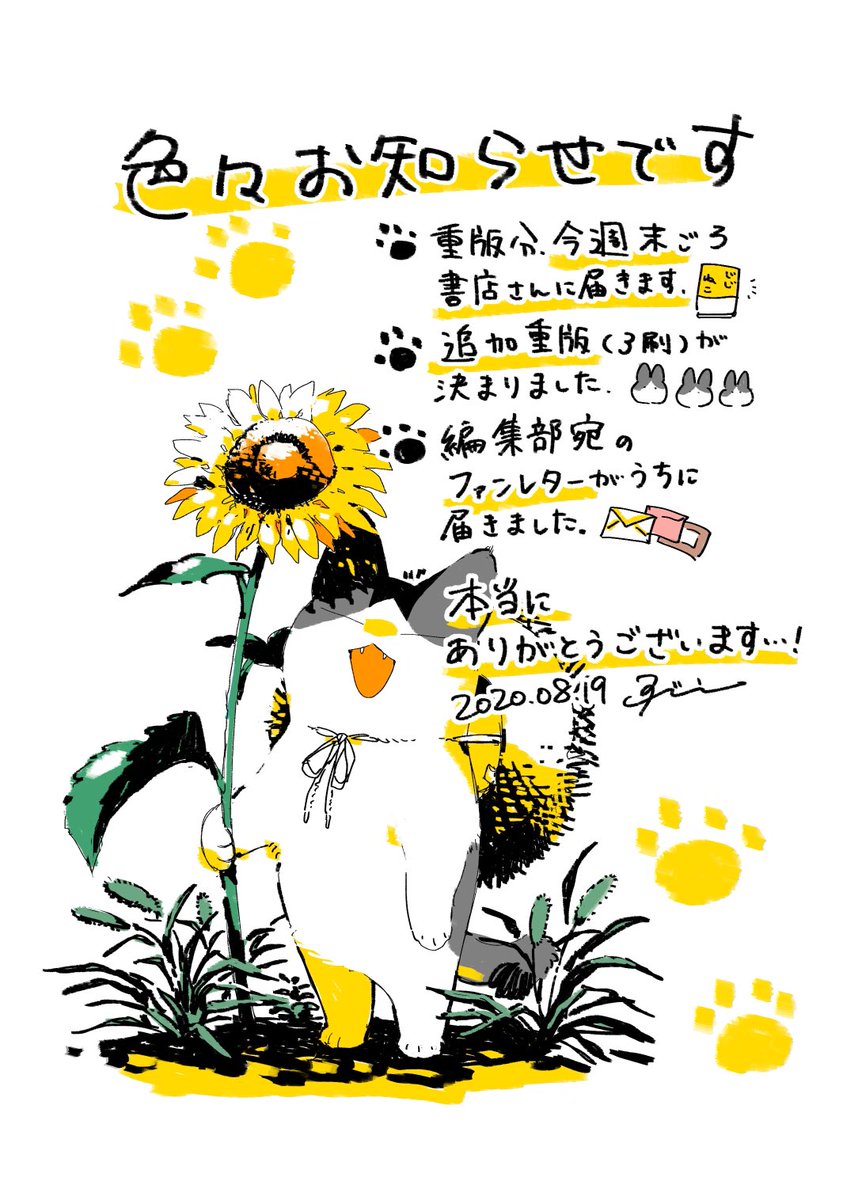 色々お知らせです
重版分、今週末ごろ
書店さんに届きます.
じじ
ねこ
追加重版(3刷)が
決まりました.
編集部宛の
ファンレターがうちに
届きました。
本当に
ありがとうございます…!
2020.08.19